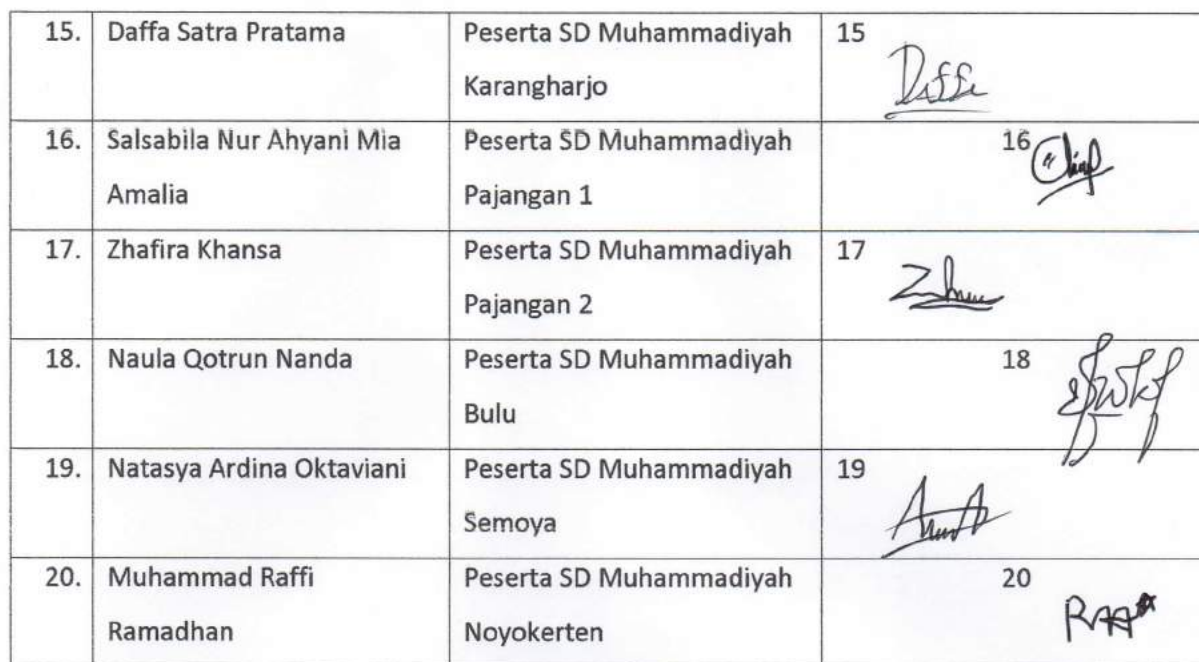 15. Daffa Satra Pratama Peserta SD Muhammadiyah 15
Karangharjo Daffa
16. Salsabila Nur Ahyani Mia Peserta SD Muhammadiyah 16
Amalia Pajangan 1
17. Zhafira Khansa Peserta SD Muhammadiyah 17
Pajangan 2
18. Naula Qotrun Nanda Peserta SD Muhammadiyah 18
Bulu
19. Natasya Ardina Oktaviani Peserta SD Muhammadiyah 19
Semoya
20. Muhammad Raffi Peserta SD Muhammadiyah 20
Ramadhan Noyokerten